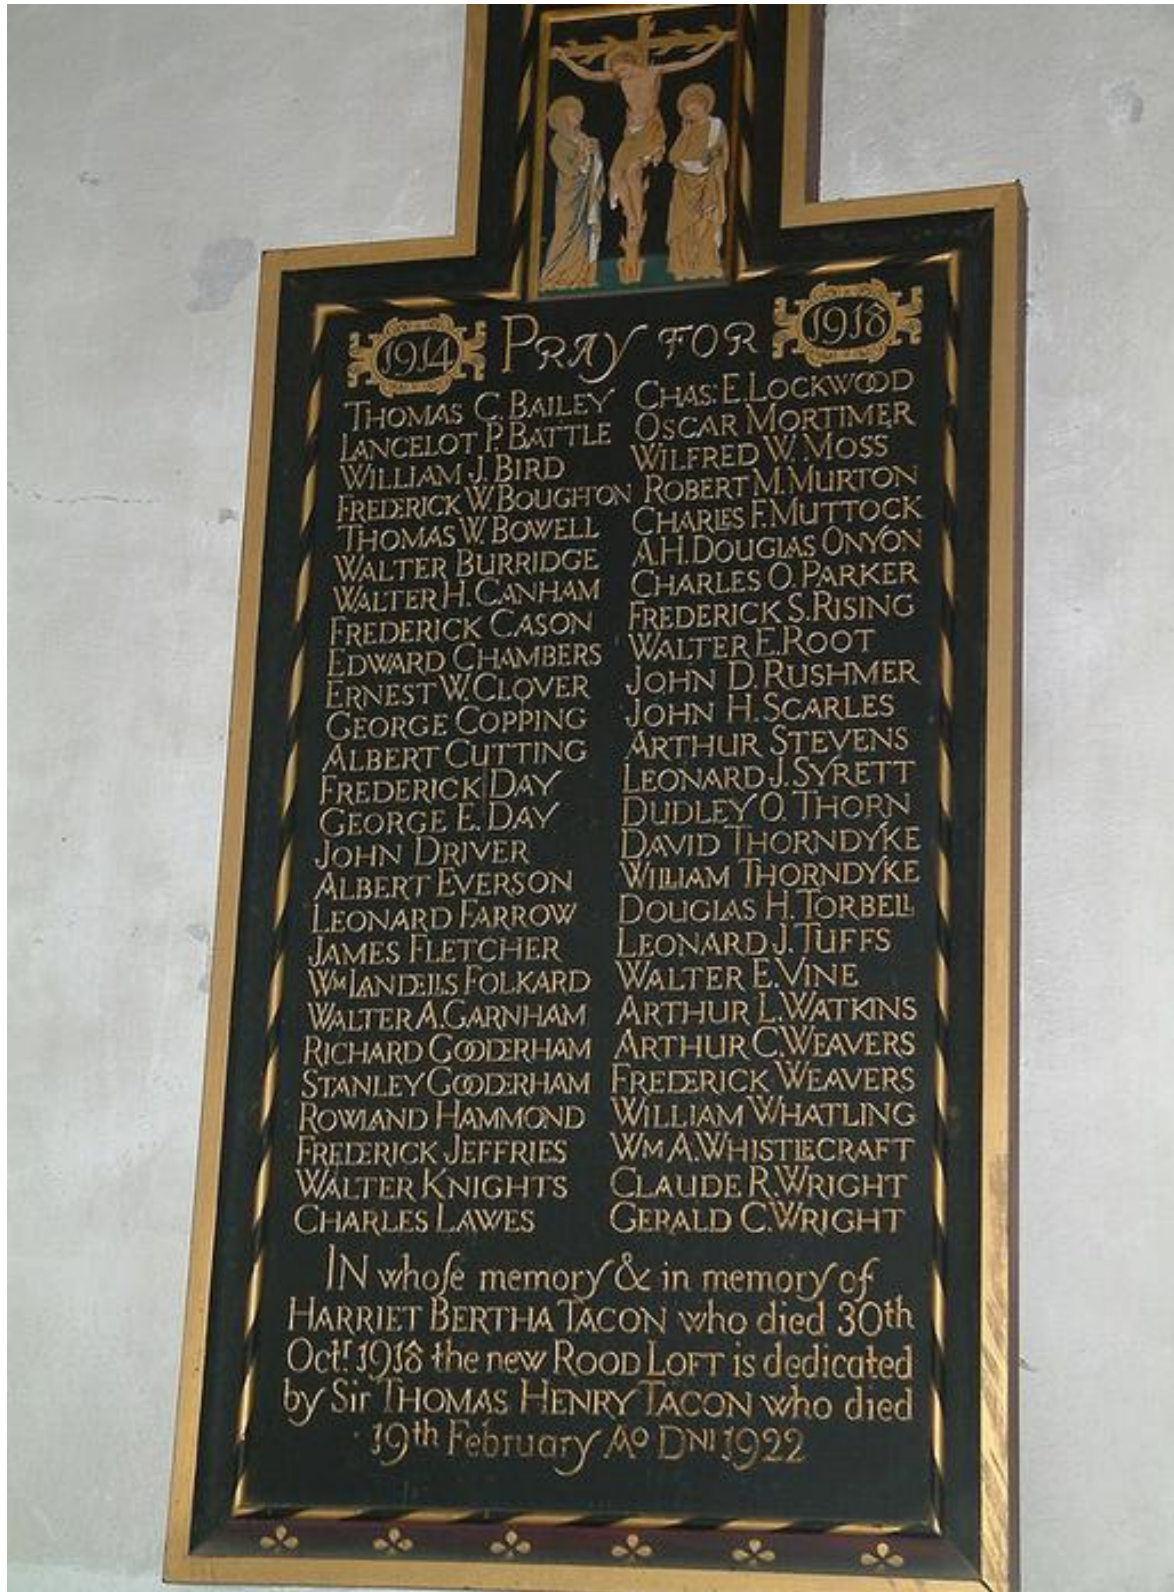 1914 PRAY FOR 1918
THOMAS C. BAILEY
LANCELOT P. BATTLE
WILLIAM J. BIRD
FREDERICK W. BOUGHTON
THOMAS W. BOWELL
WALTER BURRIDGE
WALTER H. CANHAM
FREDERICK CASON
EDWARD CHAMBERS
ERNEST W CLOVER
GEORGE COPPING
ALBERT CUTTING
FREDERICK DAY
GEORGE E. DAY
JOHN DRIVER
ALBERT EVERSON
LEONARD FARROW
JAMES FLETCHER
WM LANDELLS FOLKARD
WALTER A. GARNHAM
RICHARD GOODERHAM
STANLEY GOODERHAM
ROWLAND HAMMOND
FREDERICK JEFFRIES
WALTER KNIGHTS
CHARLES LAWES
CHAS: E. LOCKWOOD
OSCAR MORTIMER
WILFRED W. MOSS
ROBERT M. MURTON
CHARLES F. MUTTOCK
A.H. DOUGLAS ONYON
CHARLES O. PARKER
FREDERICK S. RISING
WALTER E. ROOT
JOHN D. RUSHMER
JOHN H. SCARLES
ARTHUR STEVENS
LEONARD J. SYRETT
DUDLEY O. THORN
DAVID THORNDYKE
WILLIAM THORNDYKE
DOUGLAS H. TORBELL
LEONARD J. TUFFS
WALTER E. VINE
ARTHUR L. WATKINS
ARTHUR C. WEAVERS
FREDERICK WEAVERS
WILLIAM WHATLING
WM A. WHISTLECRAFT
CLAUDE R. WRIGHT
GERALD C. WRIGHT
IN whoſe memory & in memory of
HARRIET BERTHA TACON who died 30th
Octr. 1918 the new ROOD LOFT is dedicated
by Sir THOMAS HENRY TACON who died
19th February Ao DNI 1922